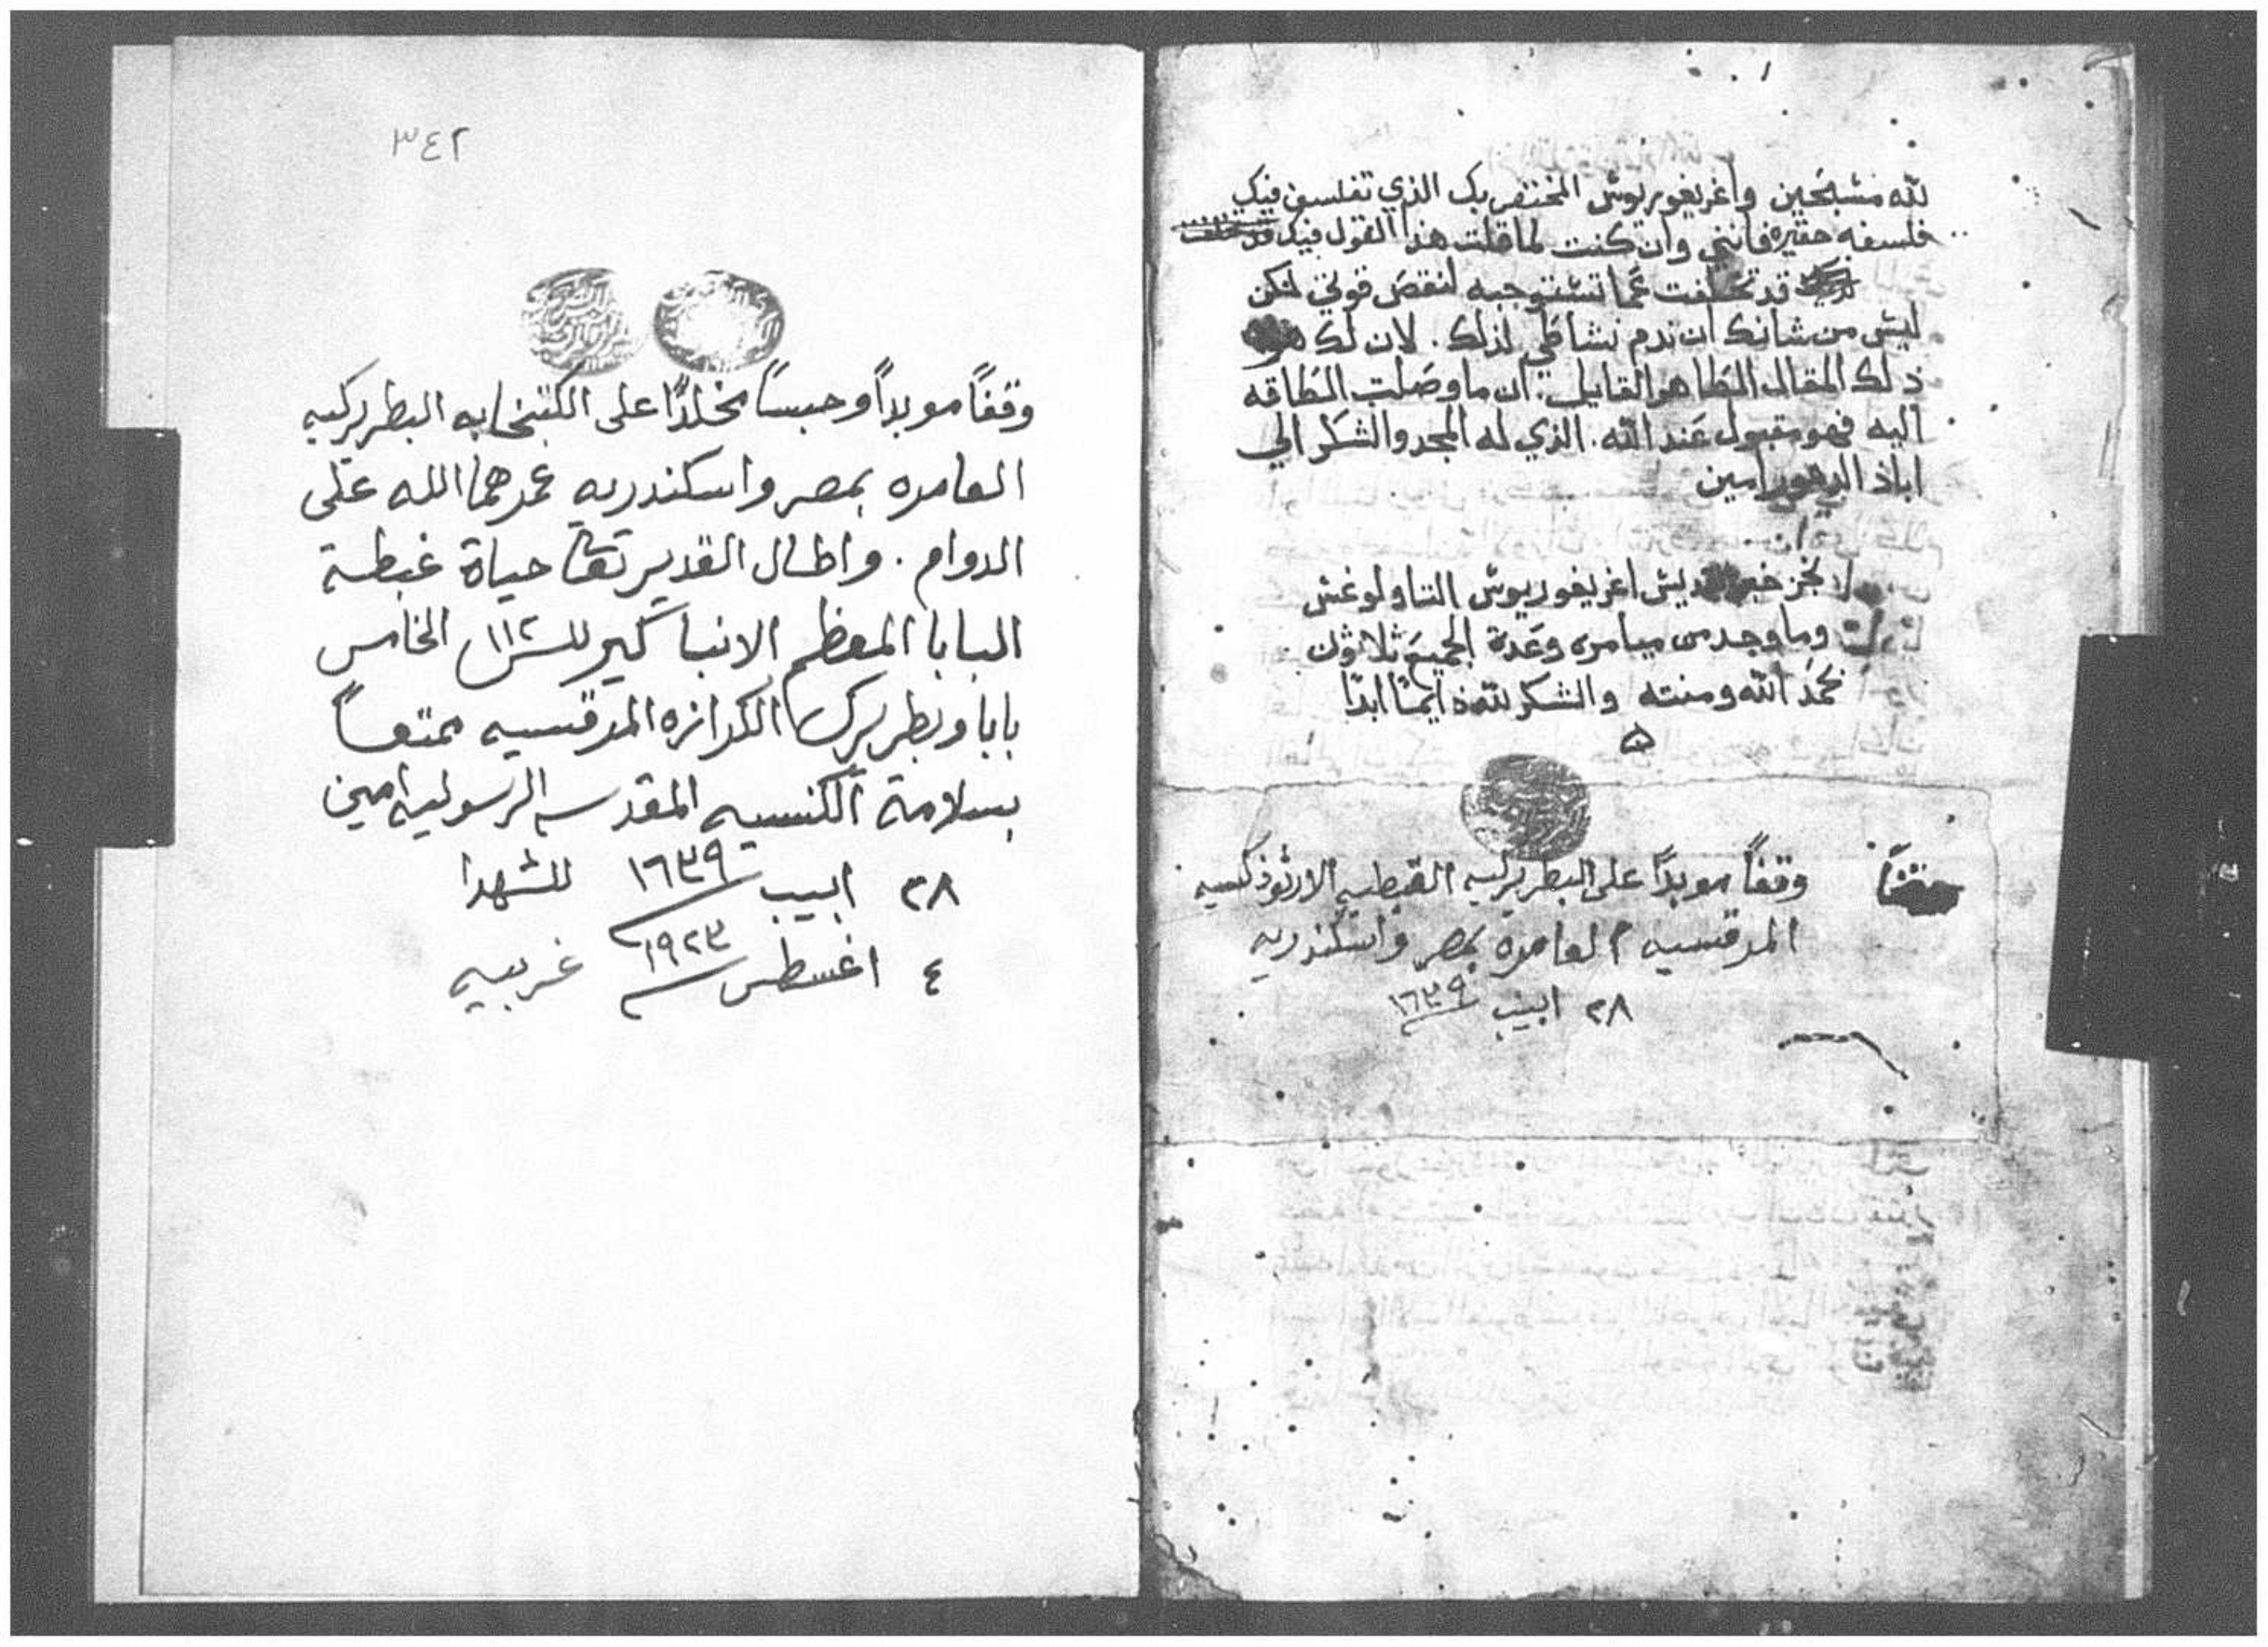 لله مسبحين واغريغوريوس المفتخر بك الذي تفلسف فيك
فلسفه حقيره فانني وان كنت لما قلت هذا القول فيك قد تخلفت
قد تخلفت عما تستوجبه لنقص قوتي لكن
ليس من شانك ان تدم نشاطي لذلك . لان لك هو
ذلك المقال الطاهر القايل . ان ما وصلت الطاقه
اليه فهو مقبول عند الله . الذي له المجد والشكر الي
اباد الدهور امين
نجز خبر القديس اغريغوريوس التاولوغس
وما وجد من ميامره وعدة الجميع ثلاثون
بحمد الله ومنته والشكر لله دايما ابدا
وقفاً موبداً على البطريركيه القبطيه الارثوذكسيه
المرقسيه العامره بمصر واسكندريه
٢٨ ابيب ١٦٣٩
٣٤٢
وقفاً موبداً وحبساً مخلداً على الكتبخانه البطريركيه
العامره بمصر واسكندريه عمرهما الله على
الدوام . واطال القدير تعالى حياة غبطة
البابا المعظم الانبا كيرللس ١١٢ الخامس
بابا وبطريرك الكرازه المرقسيه ممتعاً
بسلامة الكنسيه المقدسه الرسوليه امين
٢٨ ابيب ١٦٣٩ للشهدا
٤ اغسطس ١٩٢٣ غربيه